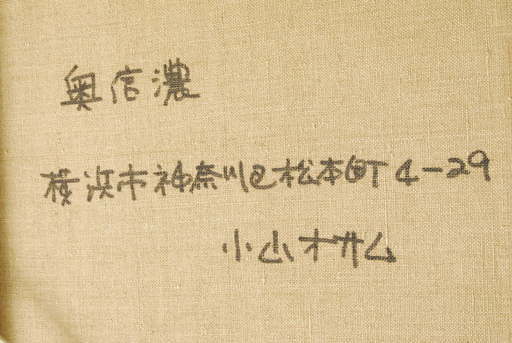 奥信濃
横浜市神奈川区松本町4-29
小山オサム